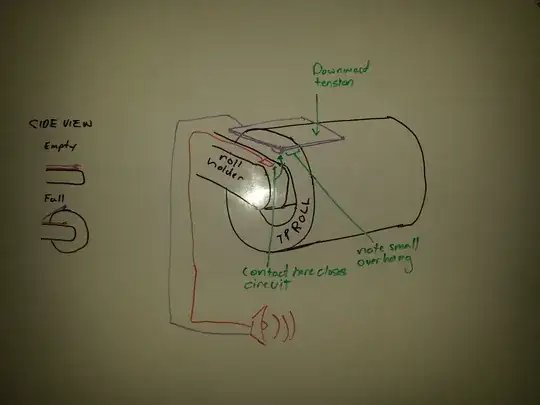 Downward
tension
SIDE VIEW
Empty
Full
roll
holder
TP ROLL
note small
overhang
Contact here closes
circuit